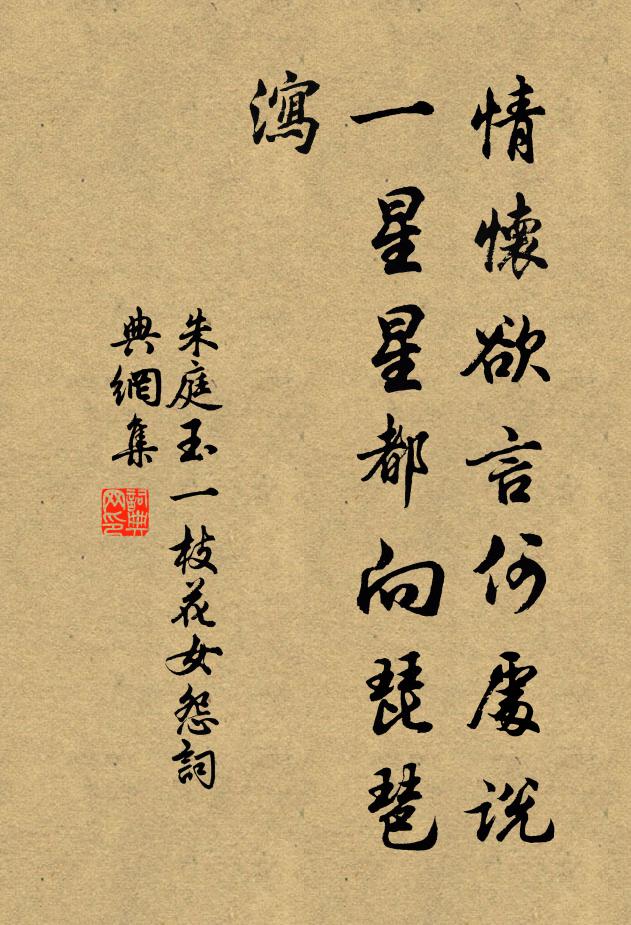 情懷欲言何處說
一星星都向琵琶
瀉
朱庭玉一枝花女怨詞
典網集
詞典
网印